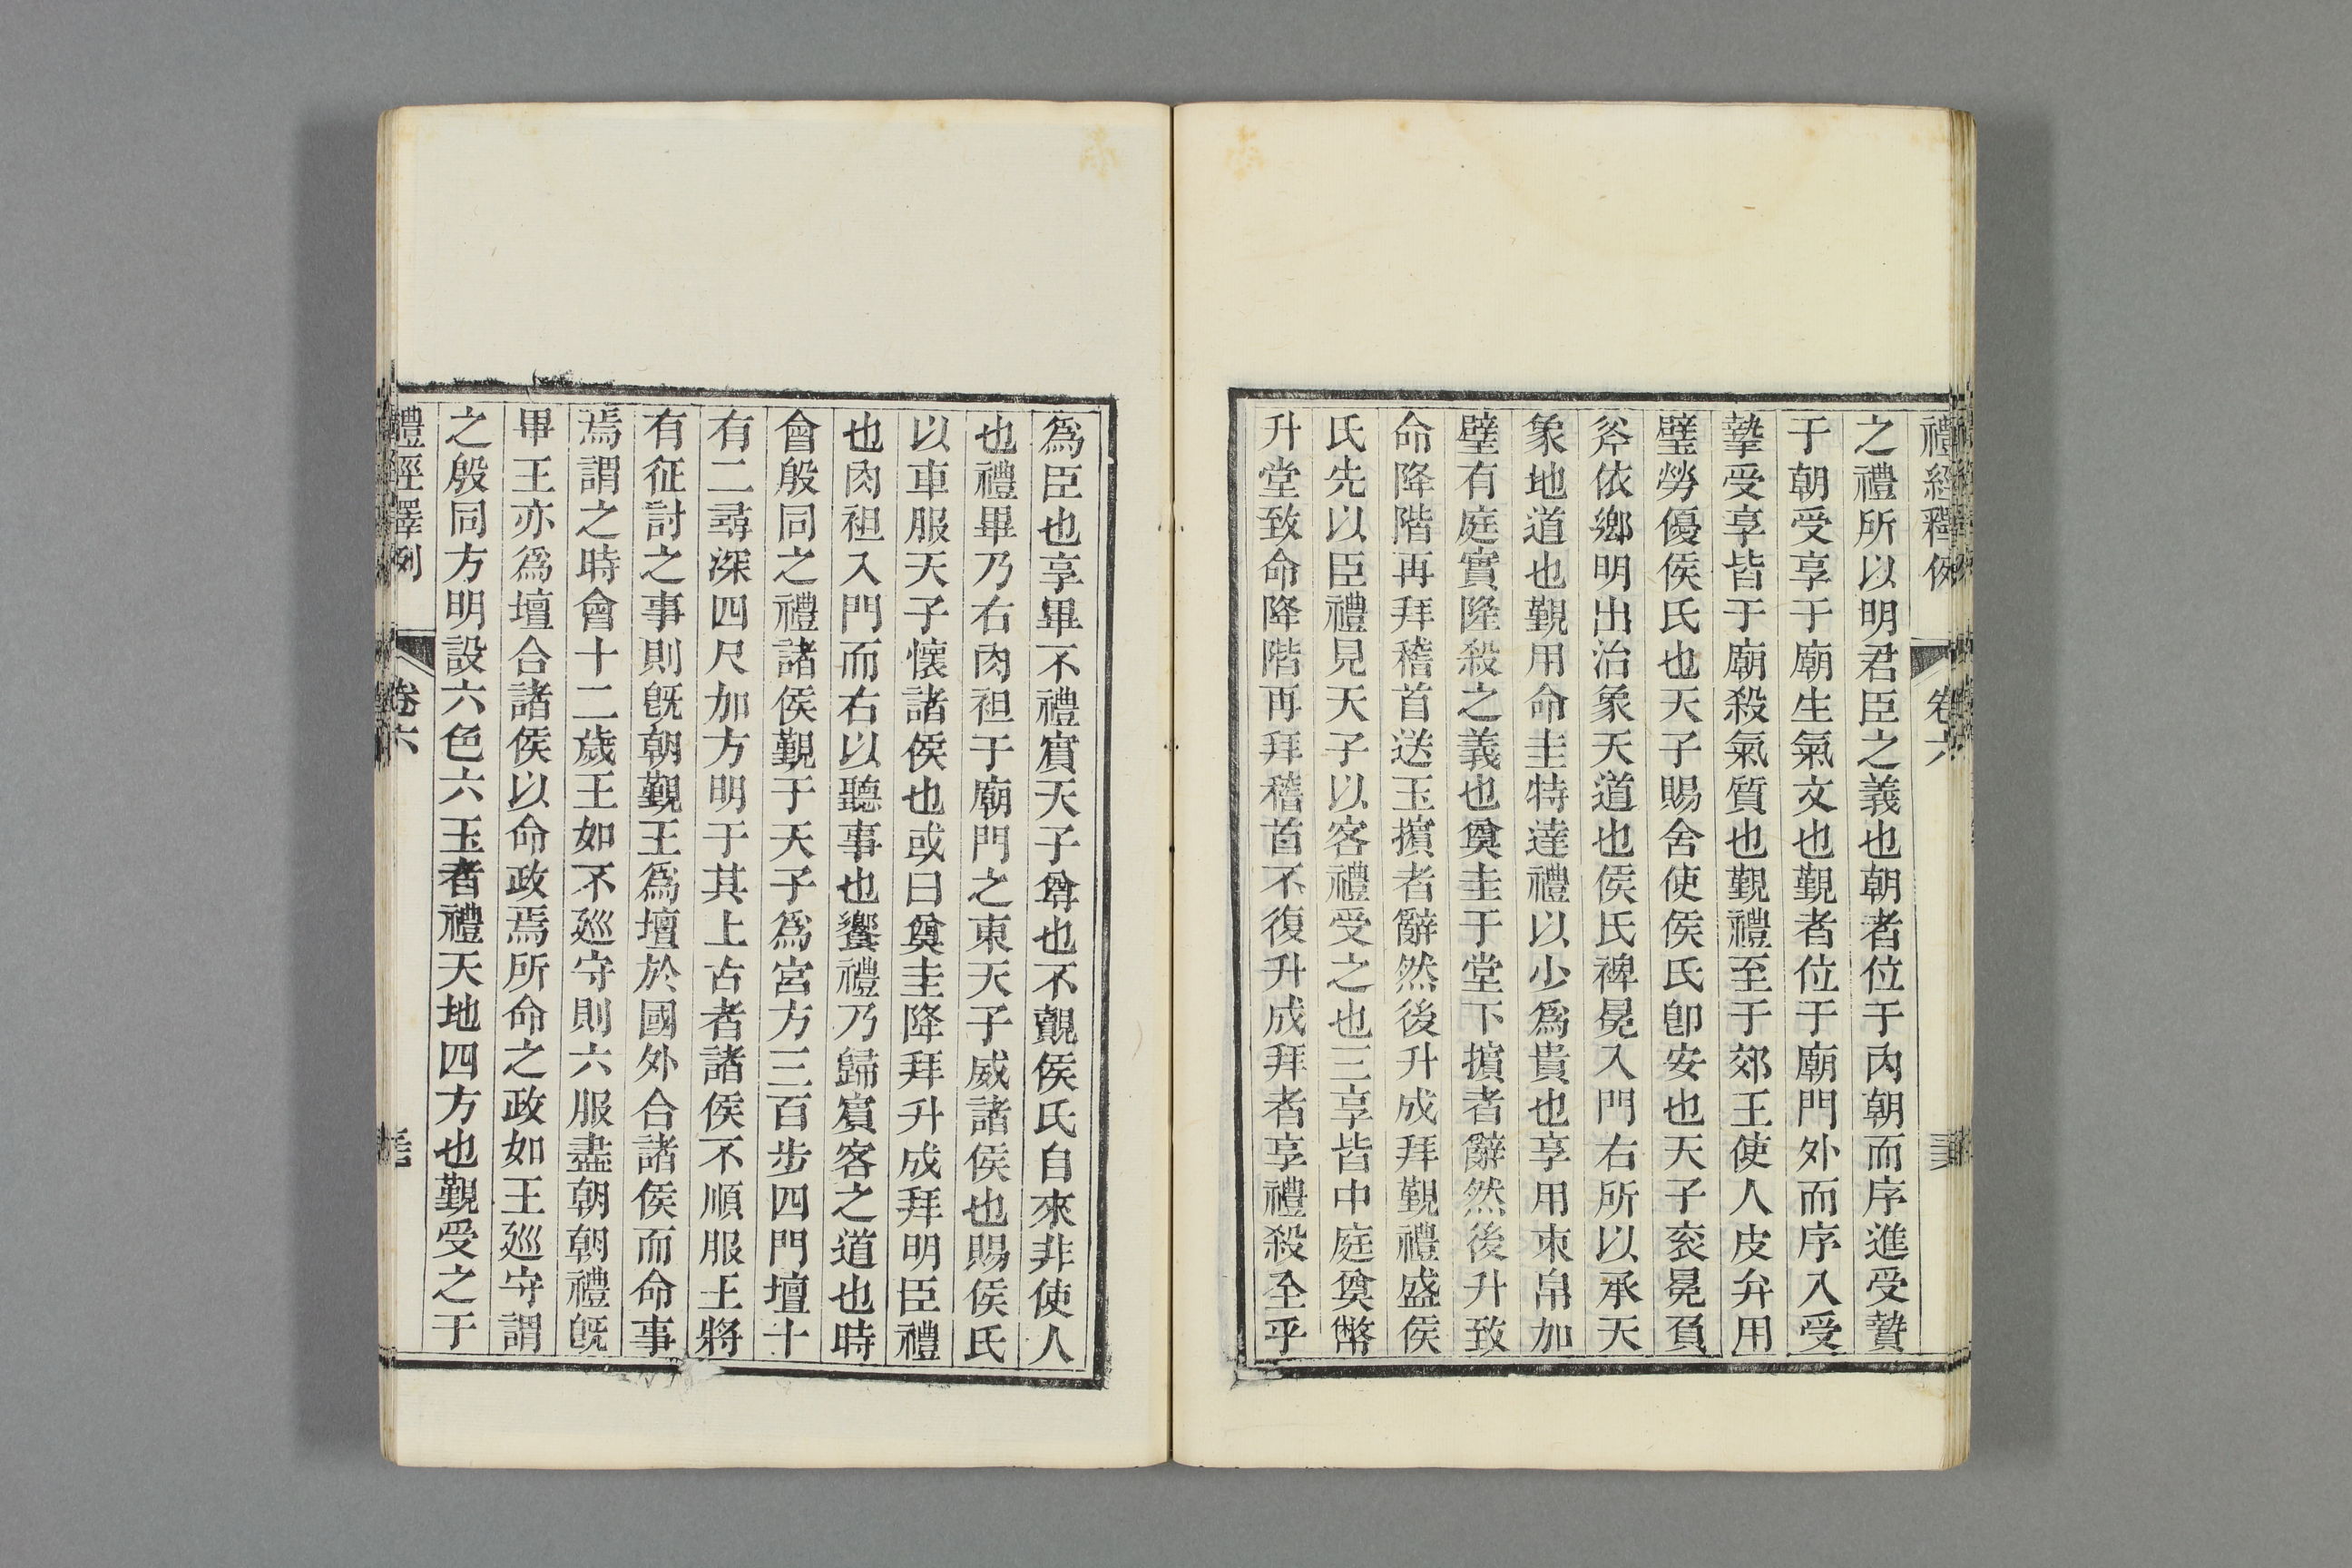 禮經釋例 卷六
之禮所以明君臣之義也朝者位于內朝而序進受贄
于朝受享于廟生氣文也覲者位于廟門外而序入受
摯受享皆于廟殺氣質也覲禮至于郊王使人皮弁用
璧勞優侯氏也天子賜舍使侯氏卽安也天子衮冕負
斧依鄉明出治象天道也侯氏裨冕入門右所以承天
象地道也覲用命圭特達禮以少爲貴也享用束帛加
璧有庭實隆殺之義也奠圭于堂下擯者辭然後升致
命降階再拜稽首送玉擯者辭然後升成拜覲禮盛侯
氏先以臣禮見天子以客禮受之也三享皆中庭奠幣
升堂致命降階再拜稽首不復升成拜者享禮殺至乎
爲臣也享畢不禮賓天子尊也不觀侯氏自來非使人
也禮畢乃右肉袒于廟門之東天子威諸侯也賜侯氏
以車服天子懷諸侯也或曰奠圭降拜升成拜明臣禮
也肉袒入門而右以聽事也饗禮乃歸賓客之道也時
會殷同之禮諸侯覲于天子爲宮方三百步四門壇十
有二尋深四尺加方明于其上古者諸侯不順服王將
有征討之事則旣朝覲王爲壇於國外合諸侯而命事
焉謂之時會十二歲王如不廵守則六服盡朝朝禮旣
畢王亦爲壇合諸侯以命政焉所命之政如王廵守謂
之殷同方明設六色六玉者禮天地四方也覲受之于
禮經釋例 卷六